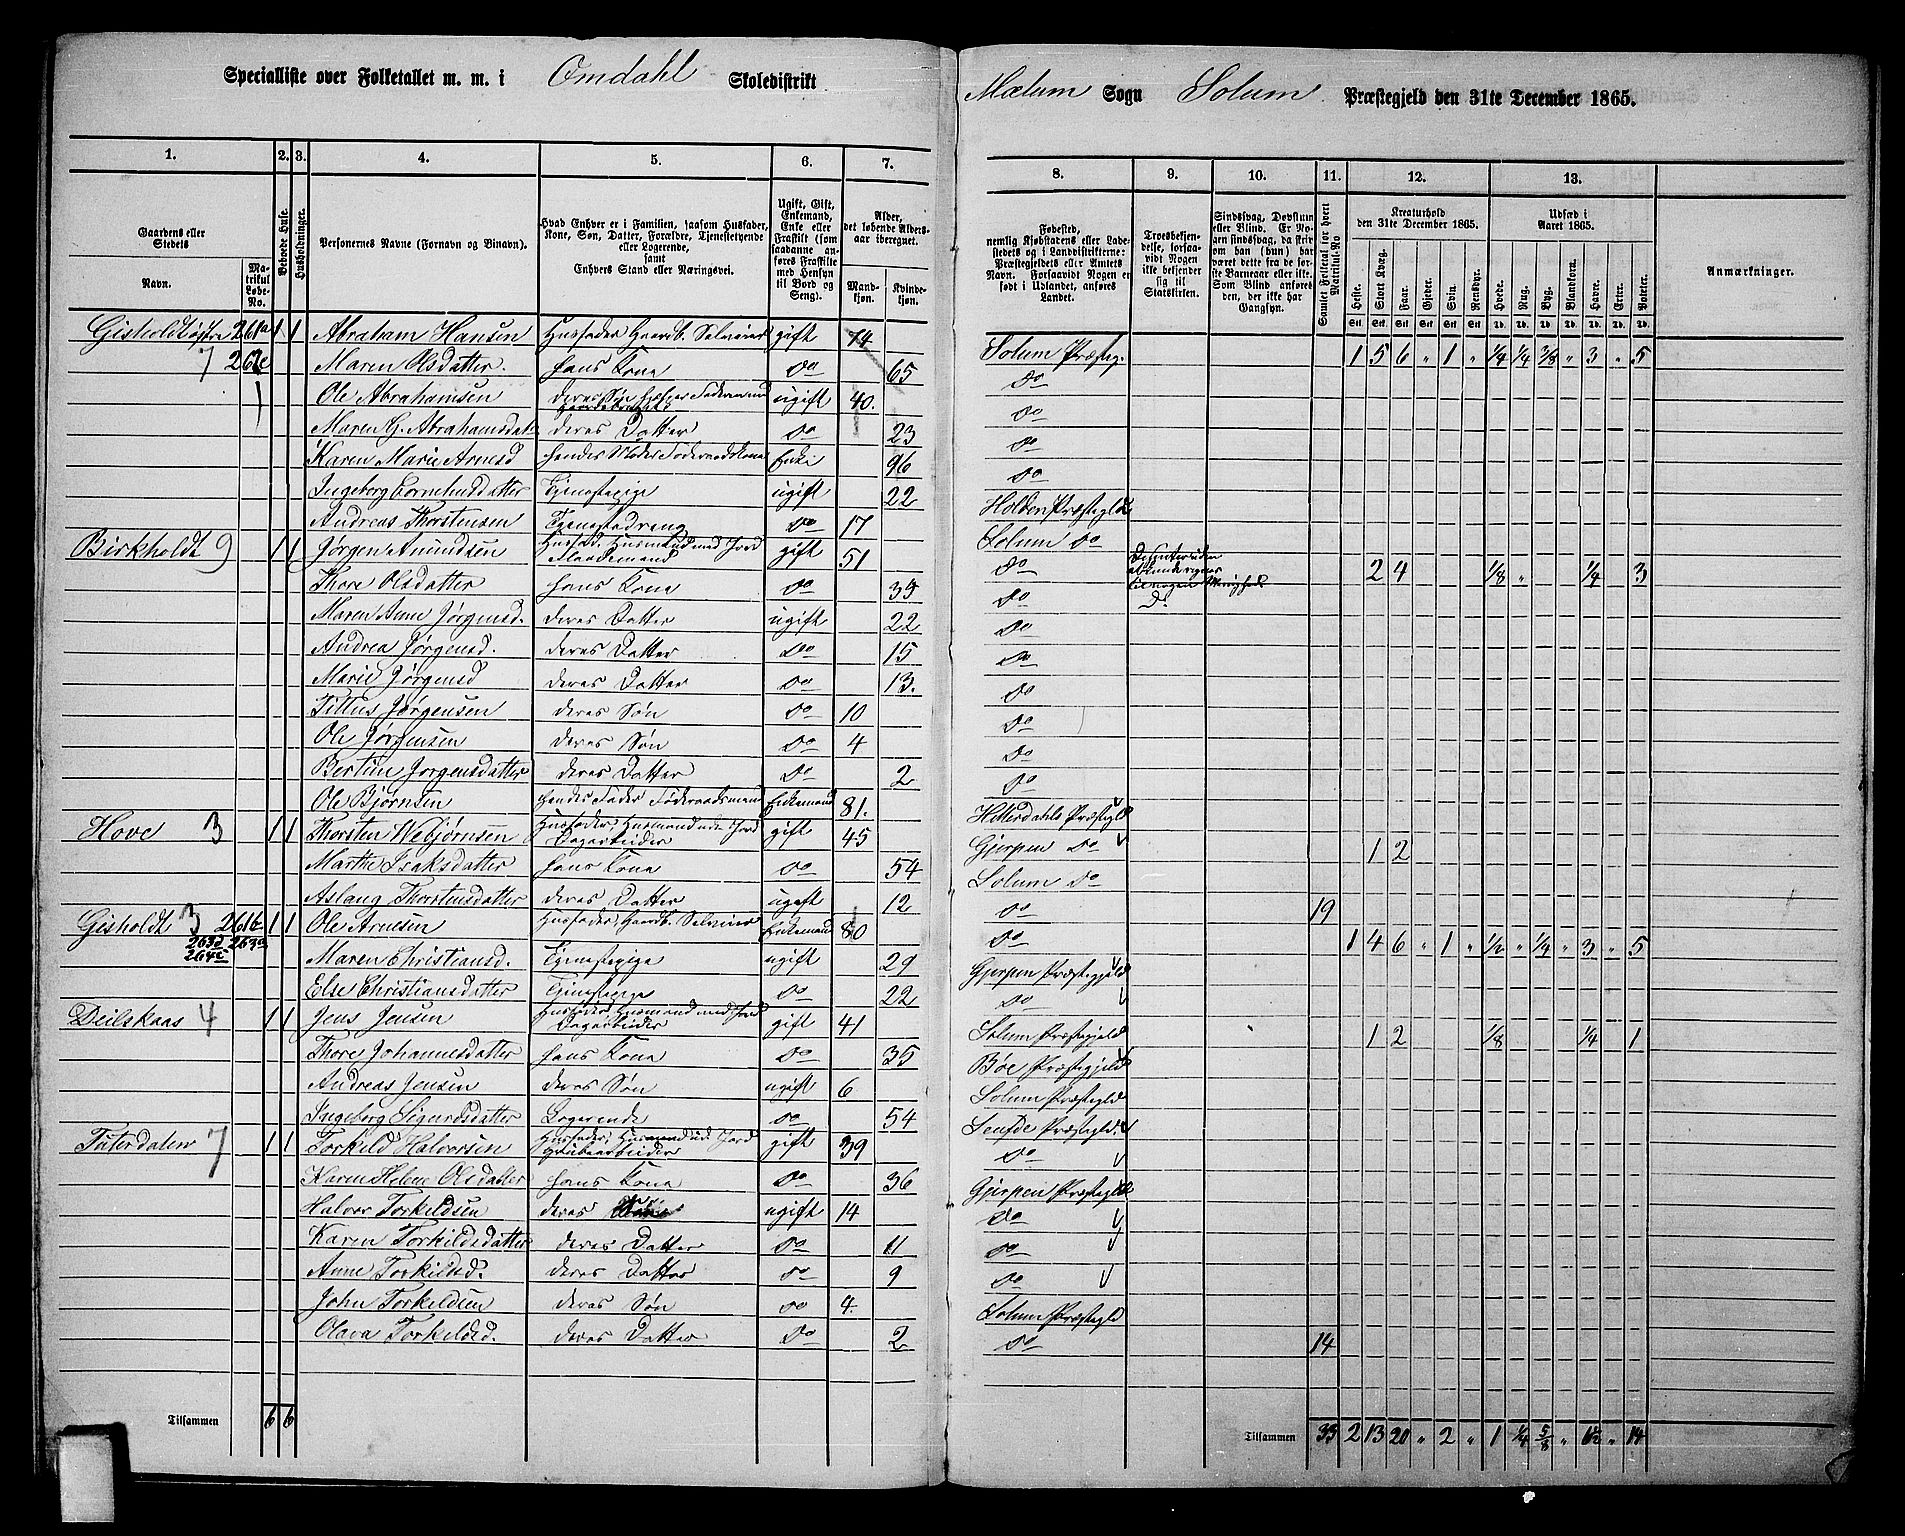 Specialliste over Folketallet m. m. i Omdahl Skoledistrikt Mælum Sogn Solum Præstegjeld den 31te December 1865.
1. 2. 3. 4. 5. 6. 7. 8. 9. 10. 11. 12. 13.
Gaardens eller Stedets Navn. Matrikul Løbe-No. Beboede Huse. Husholdninger. Personernes Navne (Fornavn og Binavn). Hvad Enhver er i Familien, saasom Husfader, Kone, Søn, Datter, Forældre, Tjenestetyende eller Logerende, samt Enhvers Stand eller Næringsvei. Ugift, Gift, Enkemand, Enke eller Fraskilt (som saadanne anføres Fraskilte med Hensyn til Bord og Seng). Alder, det løbende Alders-aar iberegnet. Mandkjøn. Kvindekjøn.
Fødested, nemlig Kjøbstadens eller Ladestedets og i Landdistrikterne: Præstegjeldets eller Amtets Navn. Forsaavidt Nogen er født i Udlandet, anføres Landet. Troesbekjendelse, forsaavidt Nogen ikke bekjender sig til Statskirken. Sindssvag, Døvstum eller Blind. Er Nogen sindssvag, da skrives om han (hun) har været dette fra de første Barneaar eller ikke. Som Blind anføres den, der ikke har Gangsyn. Samlet Folketal for hvert Matrikul-No Kreaturhold den 31te December 1865. Heste. Stort Kvæg. Faar. Gjeder. Svin. Rensdyr. Udsæd i Aaret 1865. Hvede. Rug. Byg. Blandkorn. Havre. Erter. Poteter. Anmærkninger.
Gisholdt østre 261a 1 1 Abraham Hansen Husfader Gaardb. Selveier gift 74 Solum Præsteg. 1 5 6 " 1 " 1/4 1/4 3/8 " 3 " 5
7 Maren Olsdatter. hans Kona do 65 do
Ole Abrahamsen deres Søn ugift 40. do
Maren G. Abrahamsdatt deres Datter do 23 do
Karen Marie Arnesd hendes Moder Føderaadskone Enke 96 do
Ingeborg Corneliusdatter Tjenestepige ugift 22 Holden Præstegld
Andreas Thorstensen Tjenestedreng do 17 Solum do
Birkholdt 9 1 1 Jørgen Amundsen Husfad. Husmand med Jord gift 51 do 2 4 1/8 " 1/4 3
Thore Olsdatter hans Kona do 39 do do
Maren Anne Jørgensd. deres Datter ugift 22 do
Andrea Jørgensd. deres Datter do 15 do
Marie Jørgensd deres Datter do 13. do
Tittus Jørgensen deres Søn do 10 do
Ole Jørgensen deres Søn do 4 do
Bertine Jørgensdatter deres Datter do 2 do
Ole Bjørnsen Hendes Fader Føderaadsmand Enkemand 81. Hitterdahls Præstegld
Hove 3 1 1 Thorsten Webjørnsen Husfader, Husmand uden Jord Dagarbeider gift 45 Gjerpen do 1 2
Marthe Isaksdatter hans Kona do 54 Solum do
Aslaug Thorstensdatter deres Datter ugift 12 do 19
Gisholdt 3 261b 1 1 Ole Arnesen Husfader, Gaardb. Selveier Enkemand 80 do 1 4 6 " 1 " 1/2 " 1/4 " 3 " 5
263d 263a
264c Maren Christiansd. Tjenestepige ugift 29 Gjerpen Præstegjeld
Else Christiansdatter Tjenestepige do 22 do
Deilskaas 4 1 1 Jens Jensen Husfader Husmand med Jord Dagarbeider gift 41 Solum Præstegjeld 1 2 1/8 1/4 1
Thore Johannesdatter hans Kona do 35 Bøe Præstegjeld
Andreas Jensen deres Søn ugift 6 Solum Præstegld
Ingeborg Sigurdsdatter Logerende do 54 Seufde Præstegld.
7 1 1 Torkild Halvorsen Husfader, Husmand ud. Jord Grubearbeider gift 39 do
Karen Helene Olsdatter hans Kona do 36 Gjerpen Præstegld
Halvor Torkildsen deres Søn ugift 14 do
Karen Torkildsdatter deres Datter do 11 do
Anne Torkildsd. deres Datter do 9 do
John Torkildsen deres Søn do 4. Solum Præstegld
Olava Torkildsd. deres Datter do 2 do 14
Tilsammen 6 6 Tilsammen 33 2 13 20 " 2 " 1 1/4 5/8 " " 14